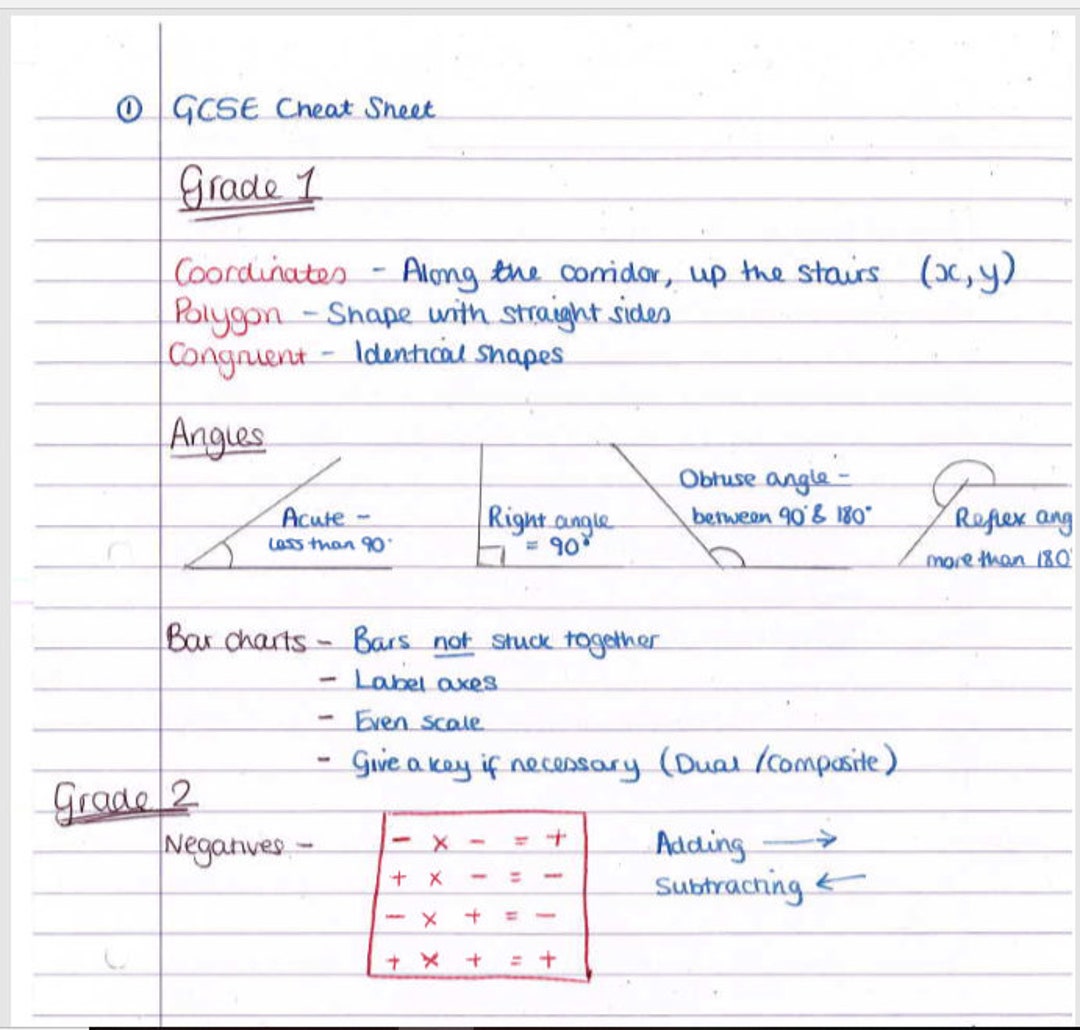 ① GCSE Cheat Sheet
Grade 1
Coordinates - Along the corridor, up the stairs (x, y)
Polygon - Shape with straight sides
Congruent - Identical shapes
Angles
Acute -
Less than 90°
Right angle
= 90°
Obtuse angle -
between 90° & 180°
Reflex ang
more than 180
Bar charts - Bars not stuck together
- Label axes
- Even scale
- Give a key if necessary (Dual /composite)
Grade 2
Negatives -
- x - = +
+ x - = -
- x + = -
+ x + = +
Adding →
Subtracting ←